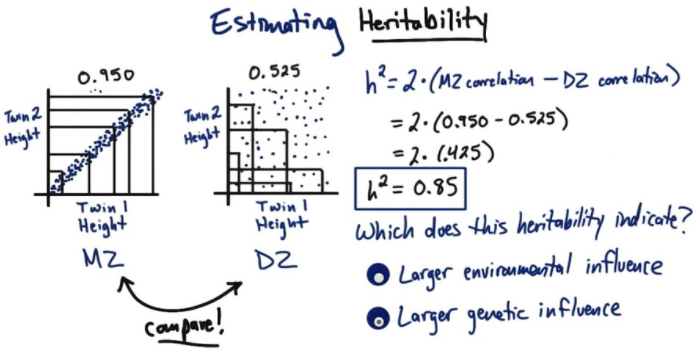 Estimating Heritability
0.950
Twin 2
Height
Twin 1
Height
MZ
0.525
Twin 2
Height
Twin 1
Height
DZ
compare!
h² = 2·(MZ correlation – DZ correlation)
= 2·(0.950 - 0.525)
= 2·(.425)
h² = 0.85
Which does this heritability indicate?
Larger environmental influence
Larger genetic influence